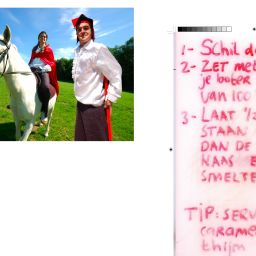 1- Schil d
2- ZET met
je boter
van 100
3- LAAT 1/2
STAAN
DAN DE
KAAS E
SMELTE
TIP: SERV
carame
thijm